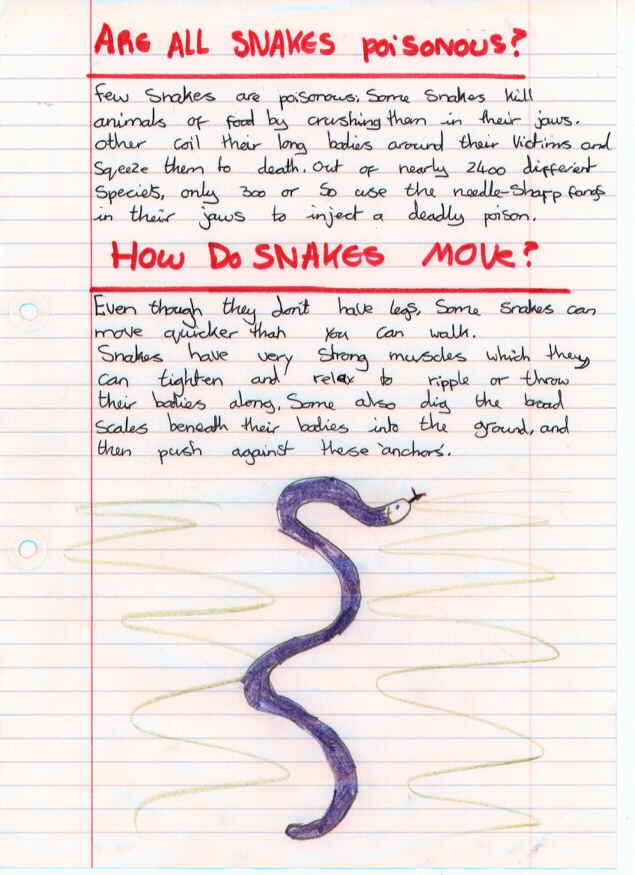 ARE ALL SNAKES POISONOUS?
Few Snakes are poisonous. Some Snakes kill
animals of food by crushing them in their jaws.
other coil their long bodies around their Victims and
Sqeeze them to death. Out of nearly 2400 different
Species, only 300 or So use the needle-Sharp fangs
in their jaws to inject a deadly poison.
HOW DO SNAKES MOVE?
Even though they don't have legs, Some snakes can
move quicker than you can walk.
Snakes have very Strong muscles which they
can tighten and relax to ripple or throw
their bodies along. Some also dig the broad
Scales beneath their bodies into the ground, and
then push against these 'anchors'.